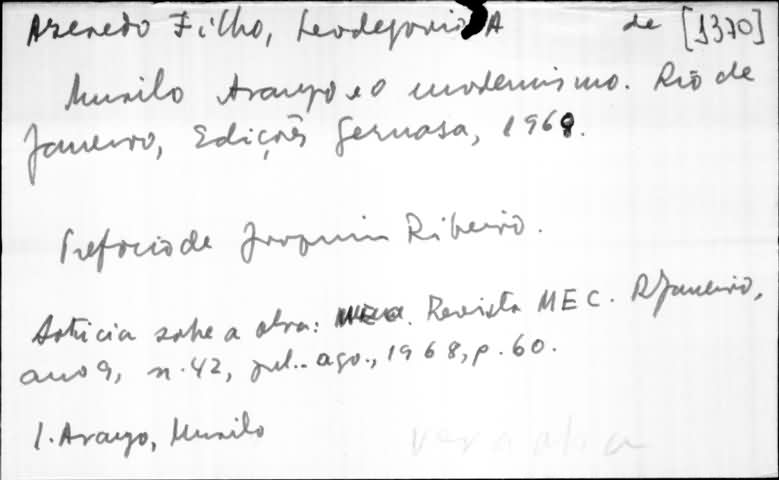 Azevedo Filho, Leodegario A de [1370]
Murilo Araujo e o modernismo. Rio de
Janeiro, Edições Gernasa, 1968.
Prefacio de Joaquim Ribeiro.
Notricia sobre a obra: Revista MEC. R Janeiro,
ano 9, n. 42, jul.. ago., 1968, p. 60.
1. Araujo, Murilo
ver a obra